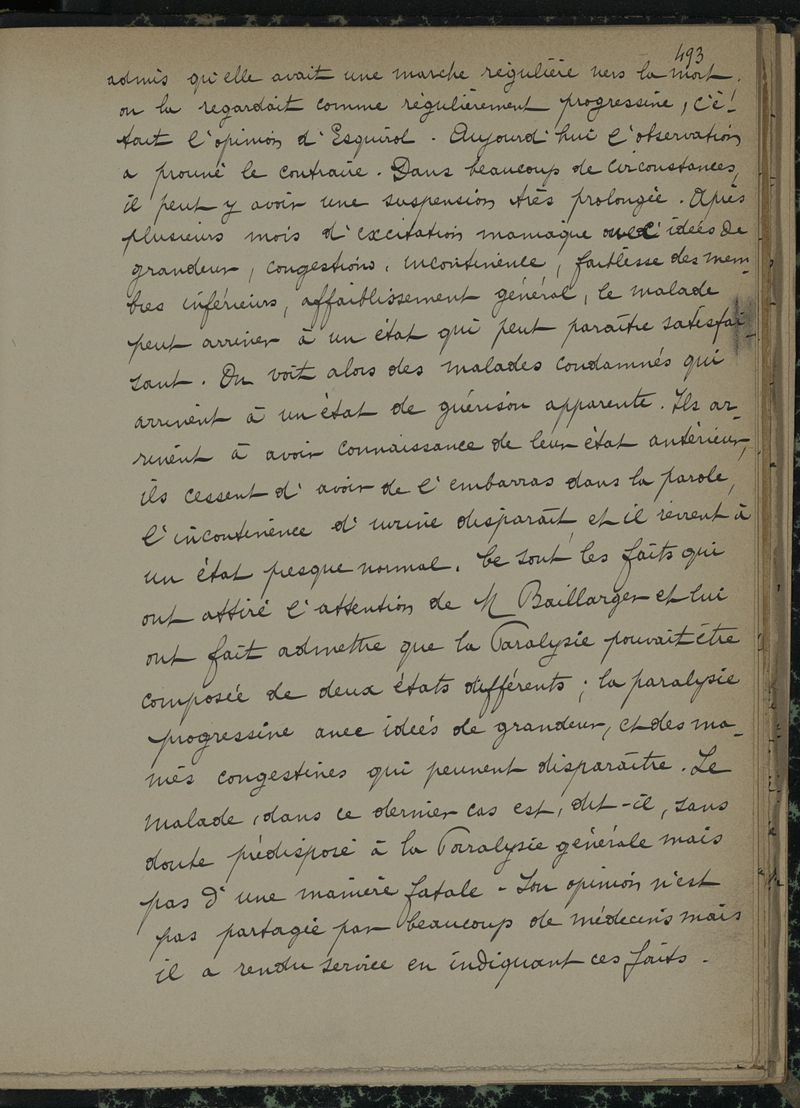 493
admis qu'elle avait une marche régulière vers la mort.
on la regardait comme régulièrement progressive, c'é-
tait l'opinion d'Esquirol. Aujourd'hui l'observation
a prouvé le contraire. Dans beaucoup de circonstances,
il peut y avoir une suspension très prolongée. Après
plusieurs mois d'excitation maniaque avec idées de
grandeur, congestions, incontinence, faiblesse des mem-
bres inférieurs, affaiblissement général, le malade
peut arriver à un état qui peut paraître satisfai-
sant. On voit alors des malades condamnés qui
arrivent à un état de guérison apparente. Ils ar-
rivent à avoir connaissance de leur état antérieur,
ils cessent d'avoir de l'embarras dans la parole,
l'incontinence d'urine disparaît, et il revient à
un état presque normal. Ce sont les faits qui
ont attiré l'attention de M Baillarger et lui
ont fait admettre que la Paralysie pouvait être
composée de deux états différents; la paralysie
progressive avec idées de grandeur, et des ma-
nies congestives qui peuvent disparaître. Le
malade, dans ce dernier cas est, dit-il, sans
doute prédisposé à la Paralysie générale mais
pas d'une manière fatale - Son opinion n'est
pas partagée par beaucoup de médecins mais
il a rendu service en indiquant ces faits.